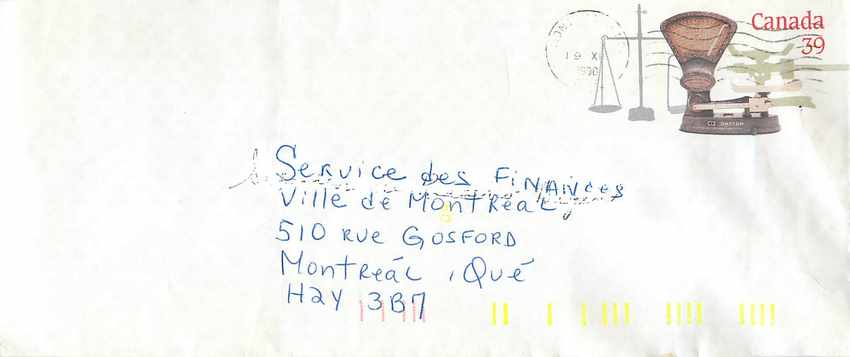 Canada
39
19 X
1990
DAYTON
Service des Finances
Ville de Montréal
510 rue Gosford
Montreál, Qué
H2Y 3B7